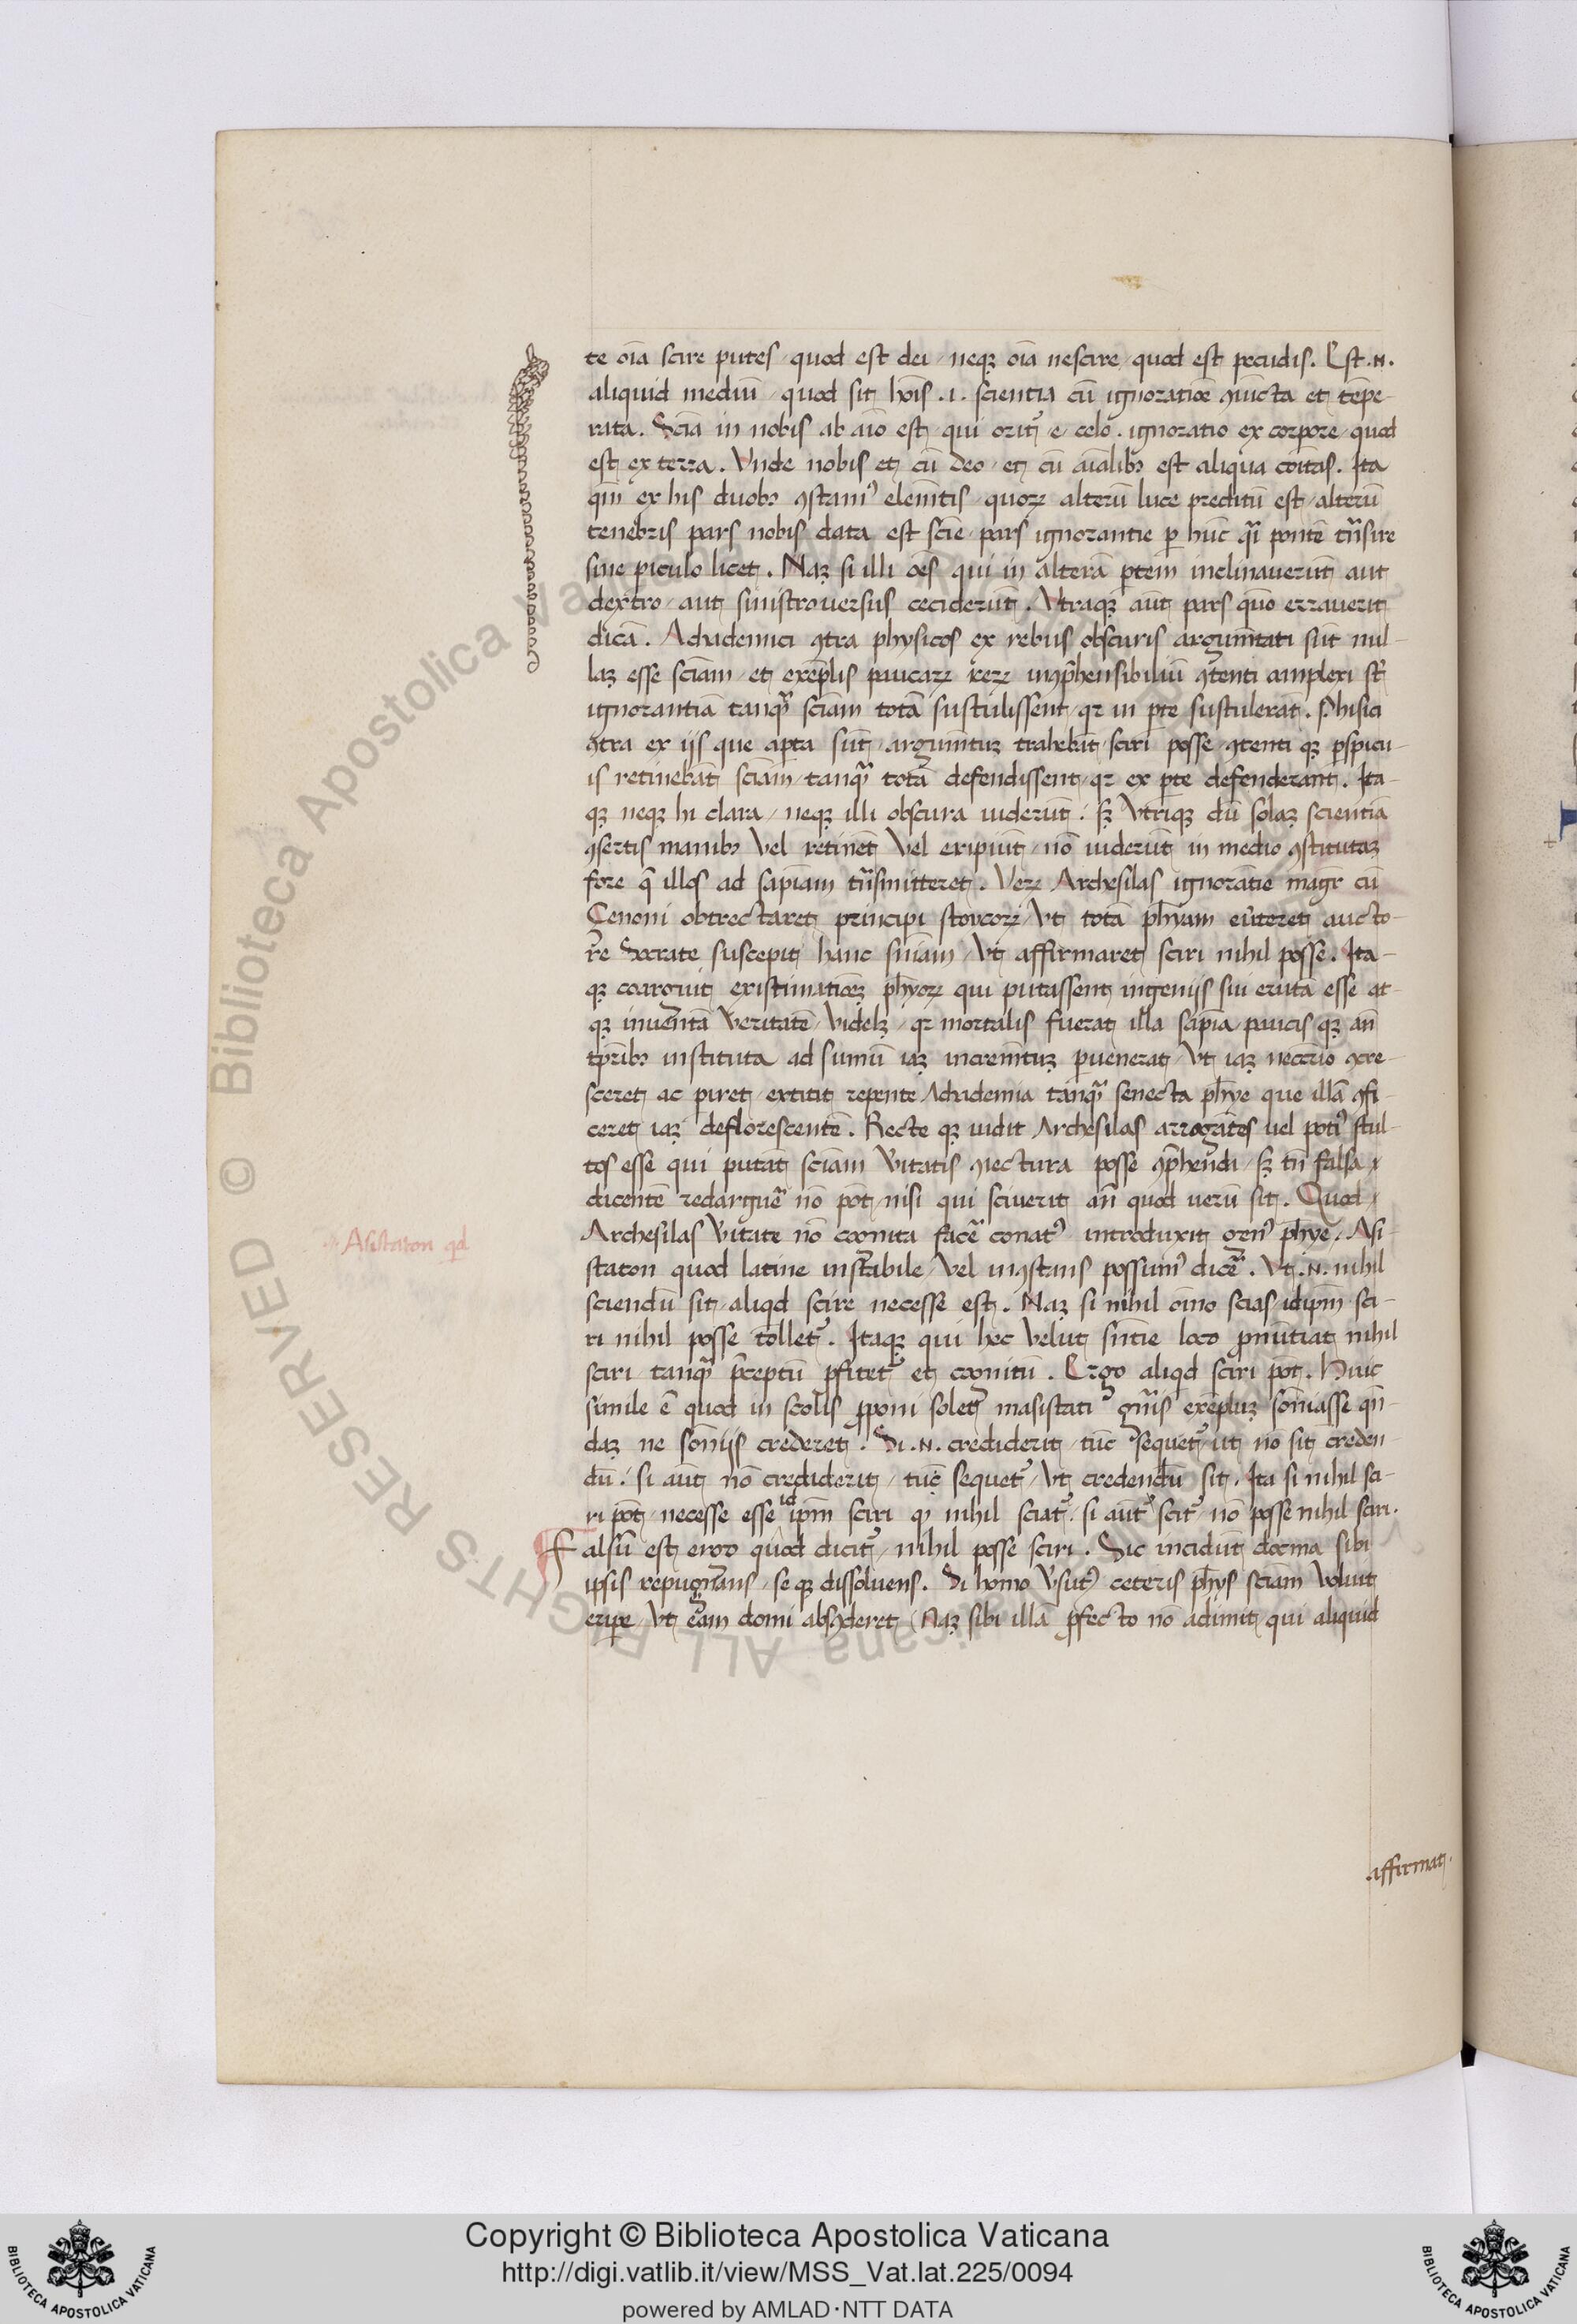 te oīa scire putes / quod est dei / neqꝫ oīa nescire / quod est pecudis. Est .N.
aliquid mediū / quod sit hoīs .i. scientia cū ignoratiōe ꝯiūcta et tēpe-
rata. Sciā in nobis ab aīo est / qui oritᷣ e celo . ignoratio ex corpore / quod
est ex terra. Vnde nobis et cū deo / et cū aīalibꝰ est aliqua coītas. Ita
qm̄ ex his duobꝰ ꝯstamꝰ elemētis / quoꝝ alterū luce preditū est / alterū
tenebris pars nobis data est sciē / pars ignorantie ꝑ hūc qͣi pontē trāsire
sine ꝑiculo licet. Naꝫ si illi oēs qui in alterā ꝑtem inclinaverūt aut
dextro / aut sinistroversus ceciderūt. Vtraqꝫ aūt pars quō erraverit
dicā. Achademici ꝯtra physicos ex rebus obscuris argumētati sūt nul-
laꝫ esse sciām / et exēplis paucaꝝ reꝝ inꝯp̄hensibiliū ꝯtenti amplexi st̄
ignorantiā tanqͣ sciām totā sustulissent / qꝛ in ꝑte sustulerāt. Phisici
ꝯtra ex ijs que apta sūt / argumētuꝫ trahebāt / sciri posse / ꝯtenti qꝫ ꝑspicu-
is retinebāt sciām / tanqͣ totā defendissent / qꝛ ex ꝑte defenderant. Ita-
qꝫ neqꝫ hi clara / neqꝫ illi obscura viderūt : sꝫ vtriqꝫ dū solaꝫ scientiā
ꝯsertis manibꝰ vel retinēt vel eripiūt / nō viderūt in medio ꝯstitutaꝫ
fore q̄ illos ad sapiām trāsmitteret. Veꝝ Archesilas ignorātie magr̄ cū
Cenoni obtrectaret principi stoycoꝝ / vt totā ph̄yam eūteret aucto-
r̄e Socrate suscepit hanc sn̄iam / vt affirmaret sciri nihil posse. Ita-
qꝫ coarguit existimatiōeꝫ ph̄yoꝝ qui putassent ingenijs sui eruta esse at-
qꝫ inventā veritatē / videlꝫ / qꝛ mortalis fuerat illa sapīa / paucis qꝫ an̄
tp̄ribꝰ instituta ad summū iaꝫ incremētuꝫ ꝑvenerat / vt iaꝫ neccr̄io ꝯse-
sceret ac ꝑiret / extitit repente Achademia tanqͣ senecta ph̄ye que illā ꝯfi-
ceret iaꝫ deflorescentē. Recte qꝫ vidit Archesilas arrogātes vel potiꝰ stul-
tos esse qui putāt sciām v̄itatis ꝯiectura posse ꝯp̄hendi / sꝫ tn̄ falsa
dicentē redarguē nō pōt / nisi qui sciverit an̄ quod verū sit. Quod
Archesilas v̄itate nō cognita facē conatꝰ introduxit genꝰ ph̄ye / Asi-
staton quod latine instabile / vel inꝯstans possumꝰ dicē. Vt .N. nihil
sciendū sit / aliqd scire necesse est. Naꝫ si nihil oīno scias / idipm̄ sci-
ri nihil posse tolletᷣ. Itaqꝫ qui hec velut sn̄tie loco ꝓnūtiat nihil
sciri / tanqͣ p̄ceptū ꝓfitetᷣ et cognitū. Ergo aliqd sciri pōt. Huic
simile ē quod in scolis ꝓponi solet masistati gn̄is exēpluꝫ somniasse qn̄-
daꝫ ne somnijs crederet. Si .N. crediderit / tūc sequetᷣ / ut nō sit creden-
dū : si aūt nō crediderit / tūc sequetᷣ / vt credendū sit. Ita si nihil sci-
ri pōt / necesse esse id ipm̄ sciri qꝫ nihil sciatᷣ. si aūt scitᷣ / nō posse nihil sciri.
Falsū est ergo quod dicitᷣ / nihil posse sciri. Sic incidūt dogma sibi
ipsis repugnans / se qꝫ dissolvens. Si homo v̄sutꝰ ceteris ph̄ys sciam voluit
eriꝑe / vt eam domi absꝯderet / Naꝫ sibi illā ꝓfecto nō adimit qui aliquid
Asistaton qd
affirmat.
Copyright © Biblioteca Apostolica Vaticana
http://digi.vatlib.it/view/MSS_Vat.lat.225/0094
powered by AMLAD·NTT DATA
BIBLIOTECA APOSTOLICA VATICANA
BIBLIOTECA APOSTOLICA VATICANA